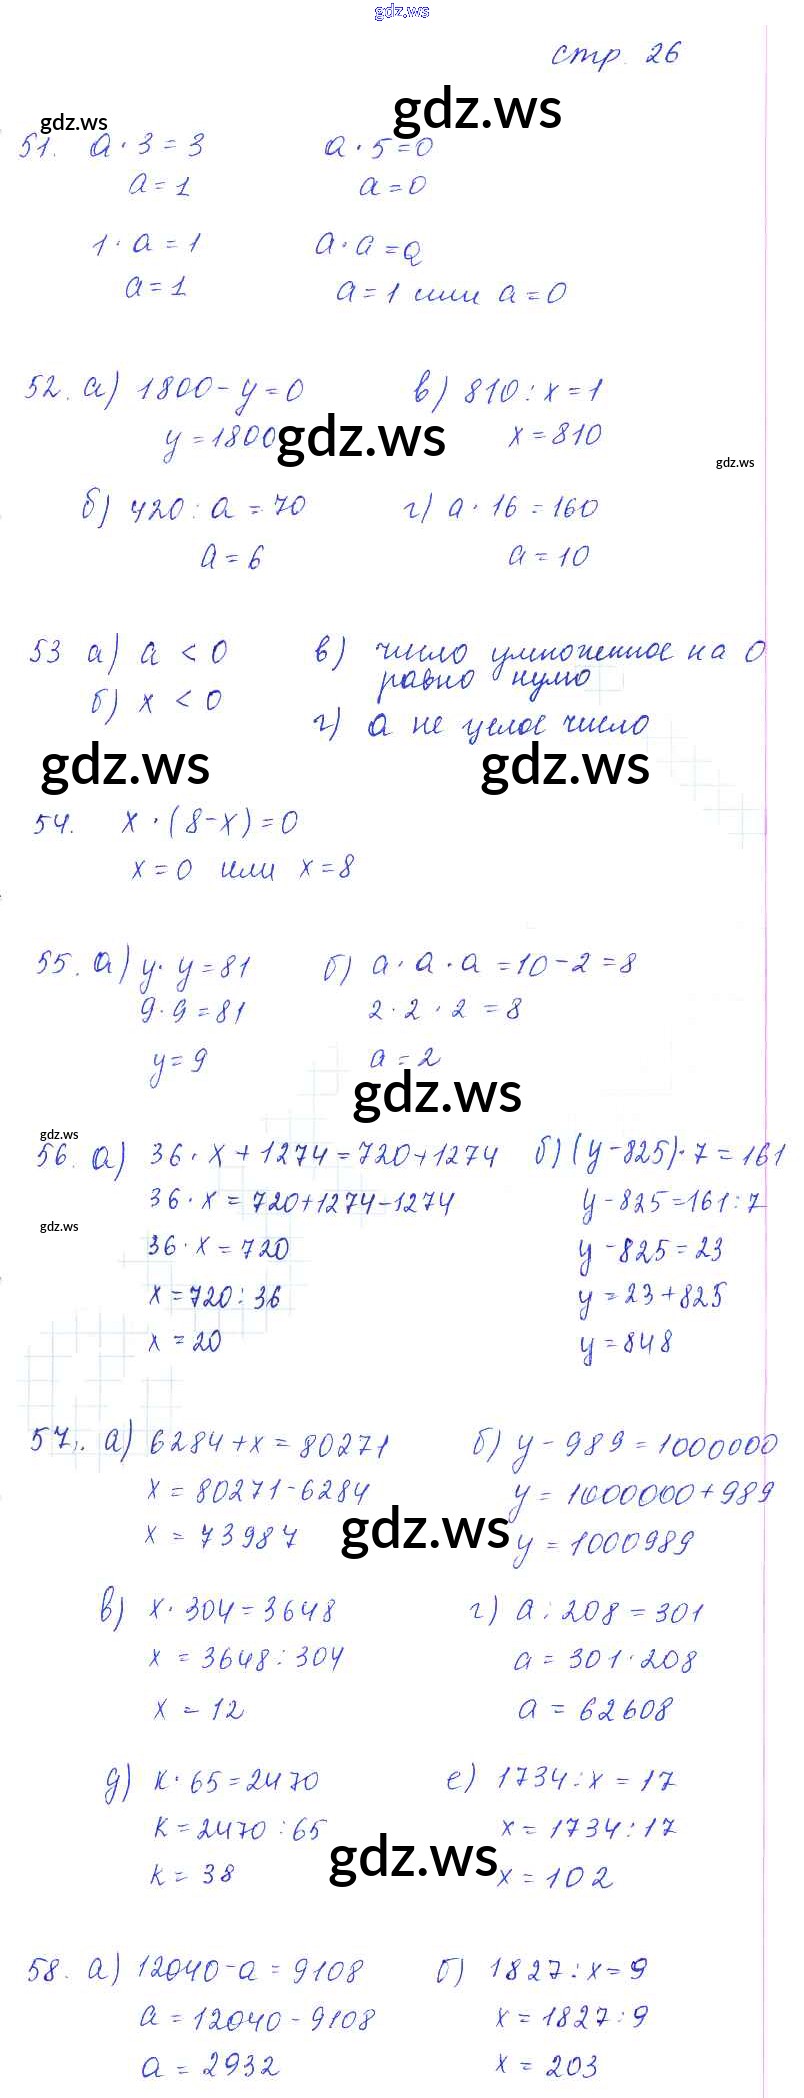 gdz.ws
стр. 26
gdz.ws gdz.ws
51. a · 3 = 3 a · 5 = 0
a = 1 a = 0
1 · a = 1 a · a = a
a = 1 a = 1 или a = 0
52. а) 1800 - y = 0 в) 810 : x = 1
y = 1800 gdz.ws x = 810
gdz.ws
б) 420 : a = 70 г) a · 16 = 160
a = 6 a = 10
53 а) a < 0 в) число умноженное на 0
равно нулю
б) x < 0
г) a не целое число
gdz.ws gdz.ws
54. x · (8 - x) = 0
x = 0 или x = 8
55. а) y · y = 81 б) a · a · a = 10 - 2 = 8
9 · 9 = 81 2 · 2 · 2 = 8
y = 9 a = 2
gdz.ws
gdz.ws
56. а) 36 · x + 1274 = 720 + 1274 б) (y - 825) · 7 = 161
36 · x = 720 + 1274 - 1274 y - 825 = 161 : 7
gdz.ws
36 · x = 720 y - 825 = 23
x = 720 : 36 y = 23 + 825
x = 20 y = 848
57. а) 6284 + x = 80271 б) y - 989 = 1000000
x = 80271 - 6284 y = 1000000 + 989
x = 73987 gdz.ws y = 1000989
в) x · 304 = 3648 г) a : 208 = 301
x = 3648 : 304 a = 301 · 208
x = 12 a = 62608
д) k · 65 = 2470 е) 1734 : x = 17
k = 2470 : 65 x = 1734 : 17
k = 38 gdz.ws x = 102
58. а) 12040 - a = 9108 б) 1827 : x = 9
a = 12040 - 9108 x = 1827 : 9
a = 2932 x = 203